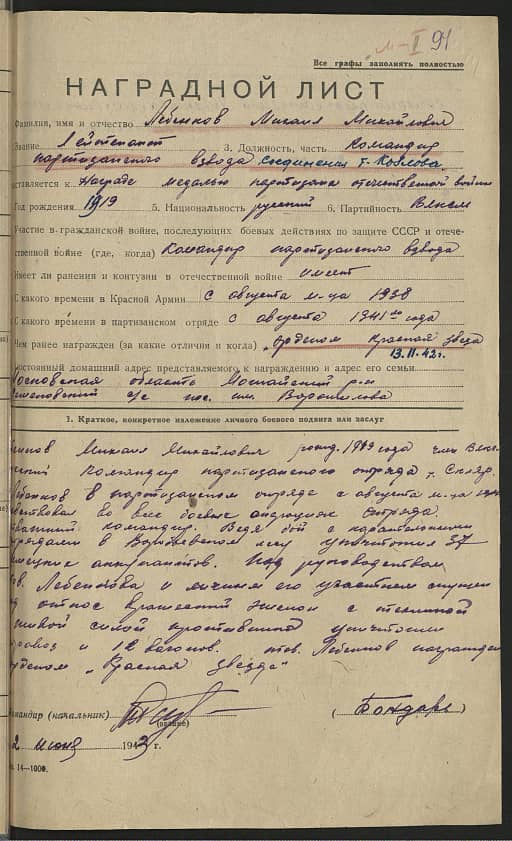 м-II 91
Все графы заполнять полностью
НАГРАДНОЙ ЛИСТ
Фамилия, имя и отчество Лебенков Михаил Михайлович
Звание Лейтенант 3. Должность, часть Командир
партизанского взвода соединения т. Козлова
ставляется к Награде медалью партизана отечественной войны
Год рождения 1919 5. Национальность русский 6. Партийность Влксм
Участие в гражданской войне, последующих боевых действиях по защите СССР и отече-
ственной войне (где, когда) Командир партизанского взвода
Имеет ли ранения и контузии в отечественной войне имеет
С какого времени в Красной Армии с августа м-ца 1938
С какого времени в партизанском отряде с августа 1941 года
Чем ранее награжден (за какие отличия и когда) "Орденом Красная звезда
13.11.42 г.
Постоянный домашний адрес представляемого к награждению и адрес его семьи
Московская область Можайский р-н
с/с пос. им. Ворошилова
1. Краткое, конкретное изложение личного боевого подвига или заслуг
Михаил Михайлович рожд. 1919 года член
Командир партизанского отряда т.
в партизанском отряде с августа м-ца
во всех боевых операциях отряда.
командир. Ведя бой с карательными
в лесу уничтожил 37
оккупантов. Под руководством
Лебенкова и личным его участием спущен
откос вражеский эшелон с техникой
живой силой противника уничтожен
и 12 вагонов. тов. Лебенков награжден
орденом „Красная звезда"
Командир (начальник) (Бондарь)
(звание)
2 июня 1943 г.
14—1000.